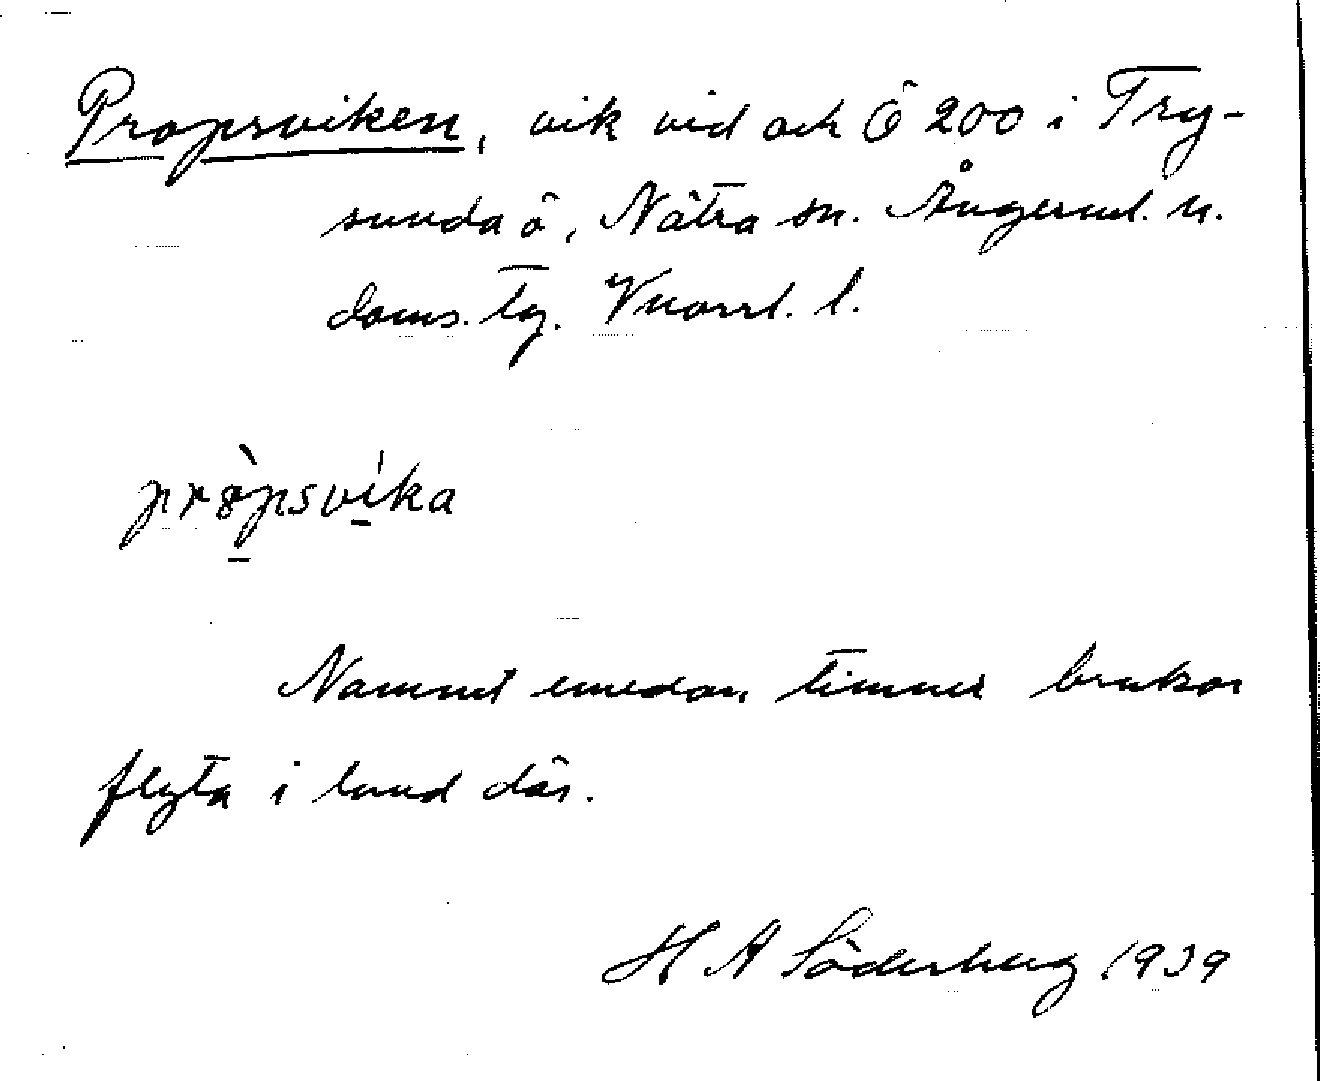 Propsviken, vik vid och Ö 200 i Try-
sunda ö, Nätra sn. Ångerml. n.
doms. tg. Vnorrl. l.
pròpsvíka
Namnet emedan timmer brukar
flyta i land där.
H A Söderberg 1939